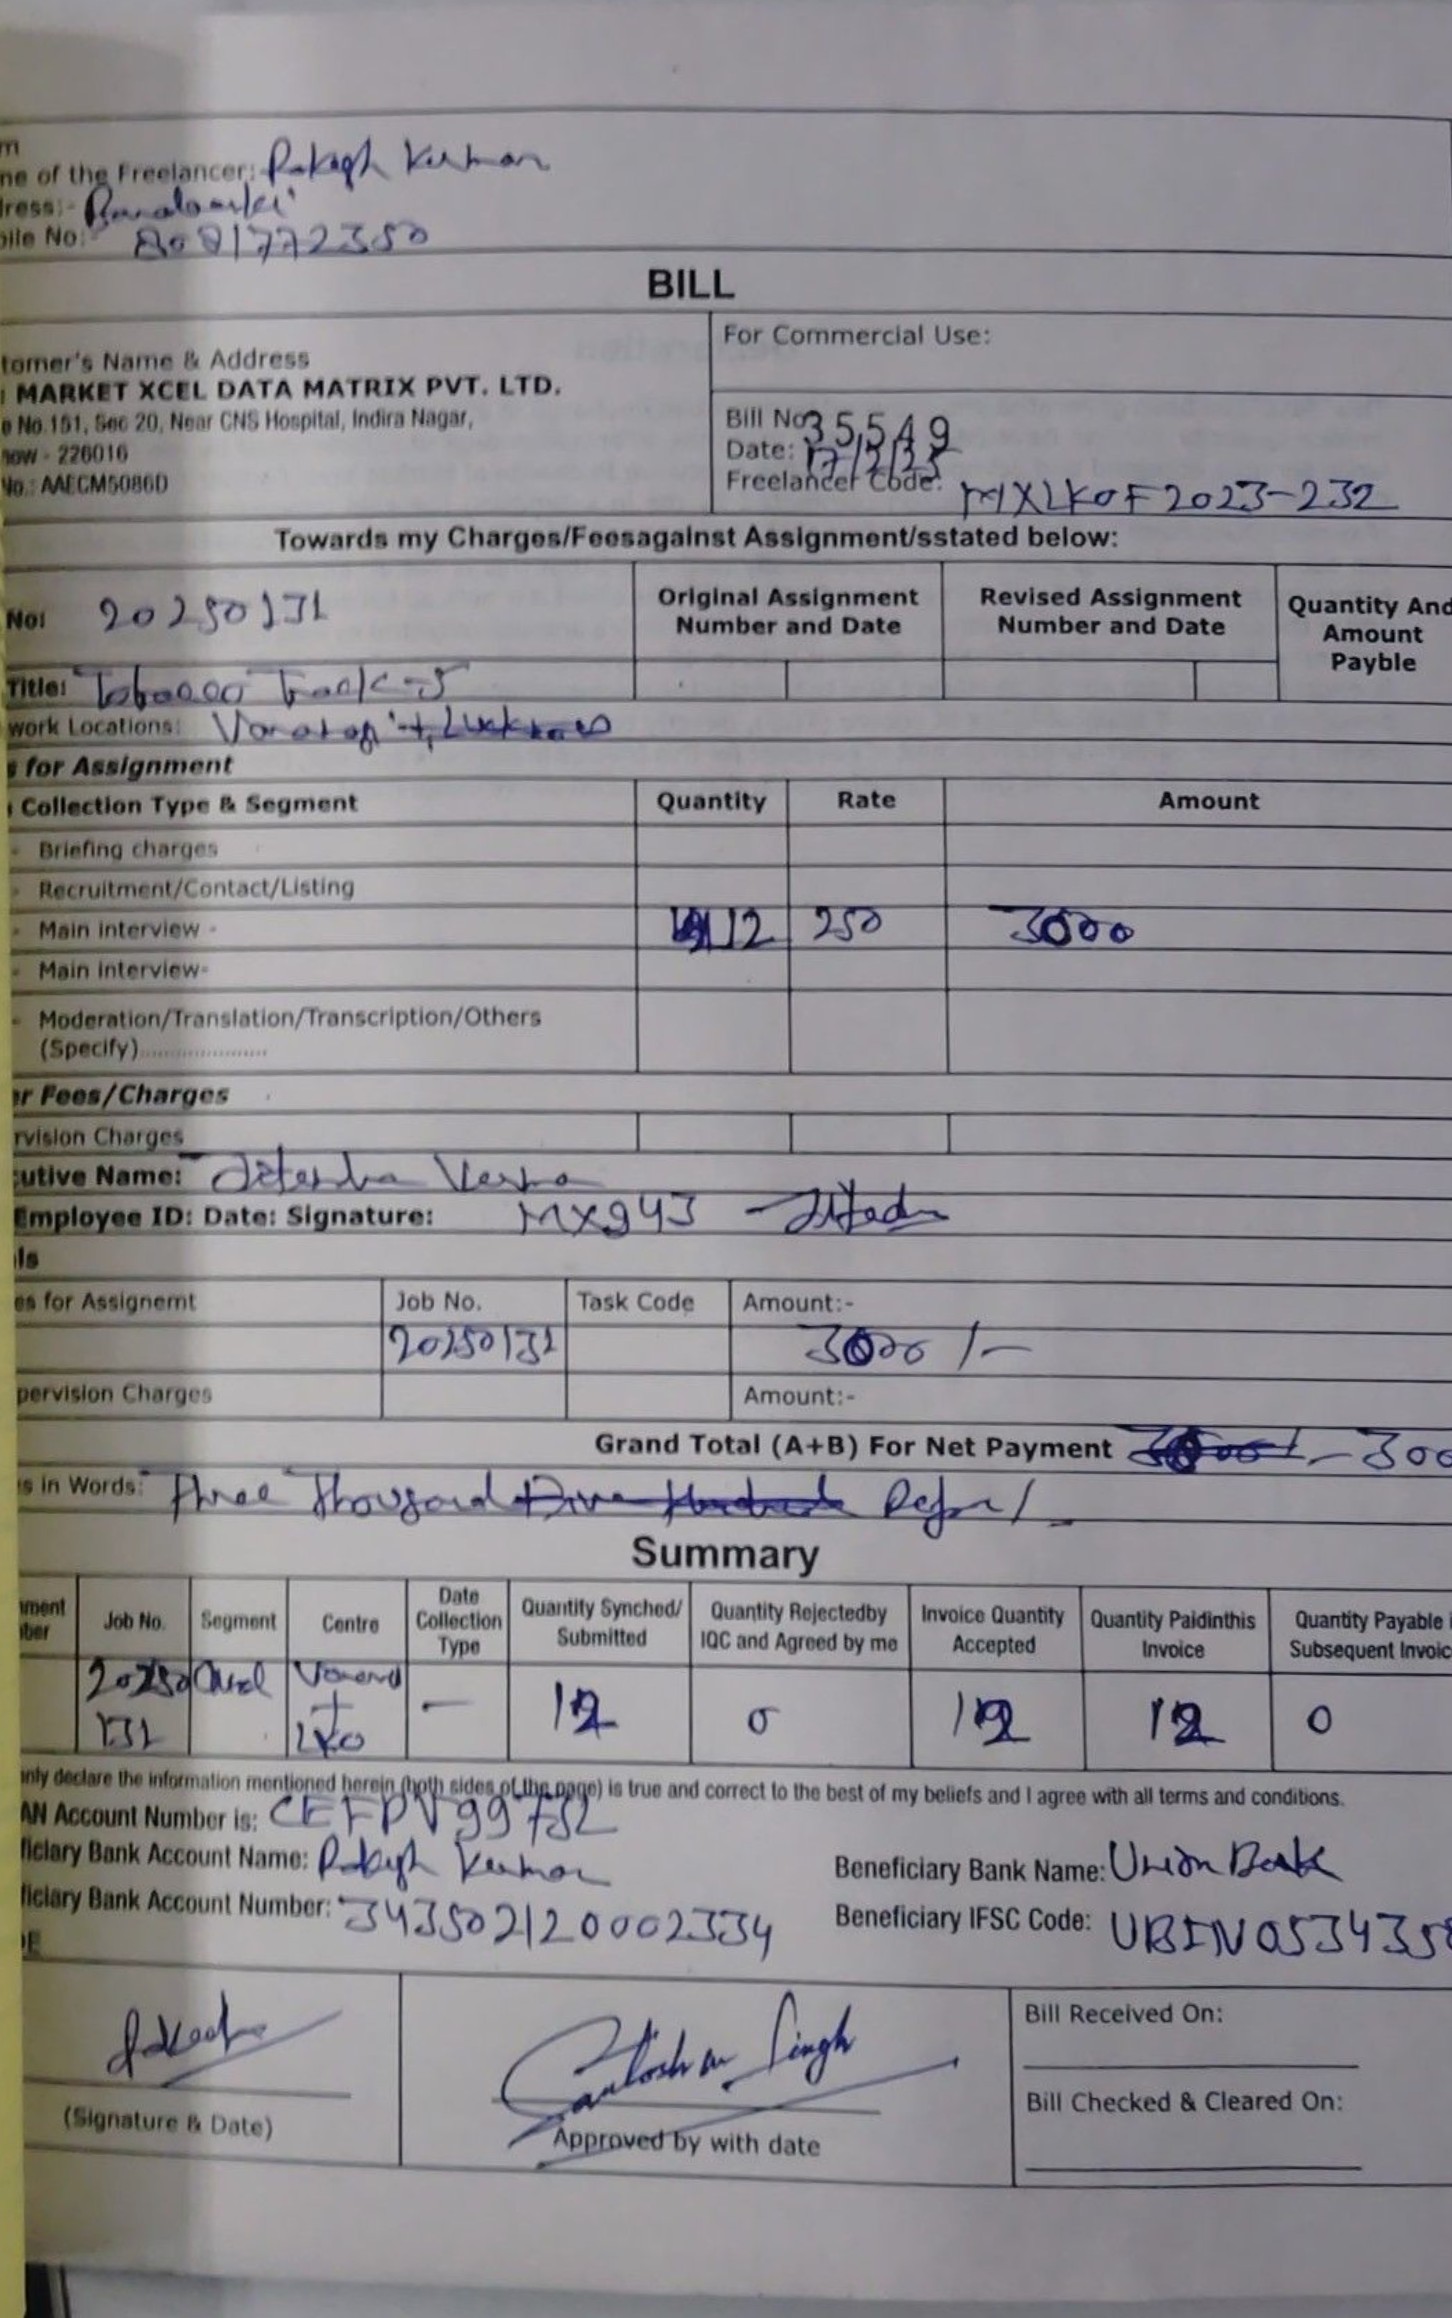 ne of the Freelancer: Rakesh Kumar
ress:- Barabanki
ile No: 8081772350
BILL
tomer's Name & Address
MARKET XCEL DATA MATRIX PVT. LTD.
e No.151, Sec 20, Near CNS Hospital, Indira Nagar,
now - 226016
No.: AAECM5086D
For Commercial Use:
Bill No 35549
Date: 17/2/25
Freelancer Code: MXLKOF2023-232
Towards my Charges/Feesagainst Assignment/sstated below:
No: 20250131
Original Assignment Number and Date
Revised Assignment Number and Date
Quantity And Amount Payble
Title: Tobacco Track-5
work Locations: Varanasi +, Lucknow
s for Assignment
Collection Type & Segment Quantity Rate Amount
- Briefing charges
- Recruitment/Contact/Listing
- Main interview - 12 250 3000
- Main interview-
- Moderation/Translation/Transcription/Others
(Specify).....................
er Fees/Charges
rvision Charges
utive Name: Jitendra Verma
Employee ID: Date: Signature: MX943
ls
es for Assignemt Job No. Task Code Amount:-
20250131 3000/-
pervision Charges Amount:-
Grand Total (A+B) For Net Payment 300
s in Words: Three Thousand
Summary
ment
ber
Job No. Segment Centre Date Collection Type Quantity Synched/ Submitted Quantity Rejectedby IQC and Agreed by me Invoice Quantity Accepted Quantity Paidinthis Invoice Quantity Payable Subsequent Invoic
20250131 Varana + LKO — 12 0 12 12 0
nly declare the information mentioned herein (both sides of the page) is true and correct to the best of my beliefs and I agree with all terms and conditions.
AN Account Number is:
ficiary Bank Account Name: Rakesh Kumar
Beneficiary Bank Name: Union Bank
ficiary Bank Account Number: 343502120002334
Beneficiary IFSC Code: UBIN053435
Rakesh
(Signature & Date)
Santosh Singh
Approved by with date
Bill Received On:
Bill Checked & Cleared On: